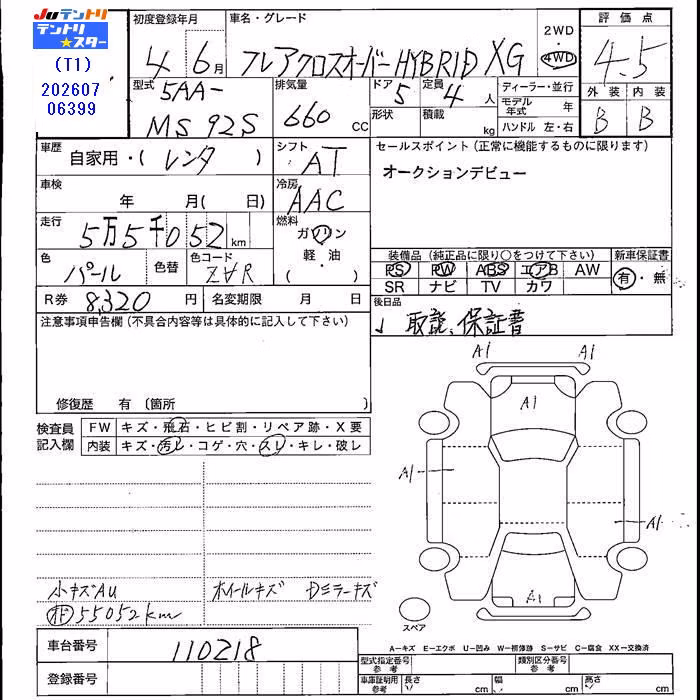 Juテントリ
テントリ★スター
(T1)
202607
06399
初度登録年月
4年6月
車名・グレード
フレアクロスオーバーHYBRID XG
2WD
・
4WD
評価点
4.5
外装 内装
B B
型式
5AA-
MS92S
排気量
660 CC
ドア
5
定員
4人
形状
積載
kg
ディーラー・並行
モデル年式 年
ハンドル 左・右
車歴
自家用・(レンタ)
シフト
AT
セールスポイント(正常に機能するものに限ります)
オークションデビュー
車検
年 月(日)
冷房
AAC
走行
5万5千052km
燃料
ガソリン
軽・油
( )
色
パール
色替
色コード
ZVR
装備品(純正品に限り○をつけて下さい)
PS PW ABS エアB AW
SR ナビ TV カワ
新車保証書
有・無
R券 8,320円
名変期限 月 日
後日品
↓取説、保証書
注意事項申告欄(不具合内容等は具体的に記入して下さい)
修復歴 有〔箇所 〕
検査員
記入欄
FW キズ・飛石・ヒビ割・リペア跡・X要
内装 キズ・汚レ・コゲ・穴・スリ・キレ・破レ
A1 A1
A1
A1
A1
A1
スペア
小キズAU ホイールキズ Dミラーキズ
55052km
車台番号 110218
登録番号
A−キズ E−エクボ U−凹み W−補修跡 S−サビ C−腐食 XX−交換済
型式指定番号
参考
類別区分番号
参考
車庫証明用
参考
長さ cm
幅 cm
高さ cm